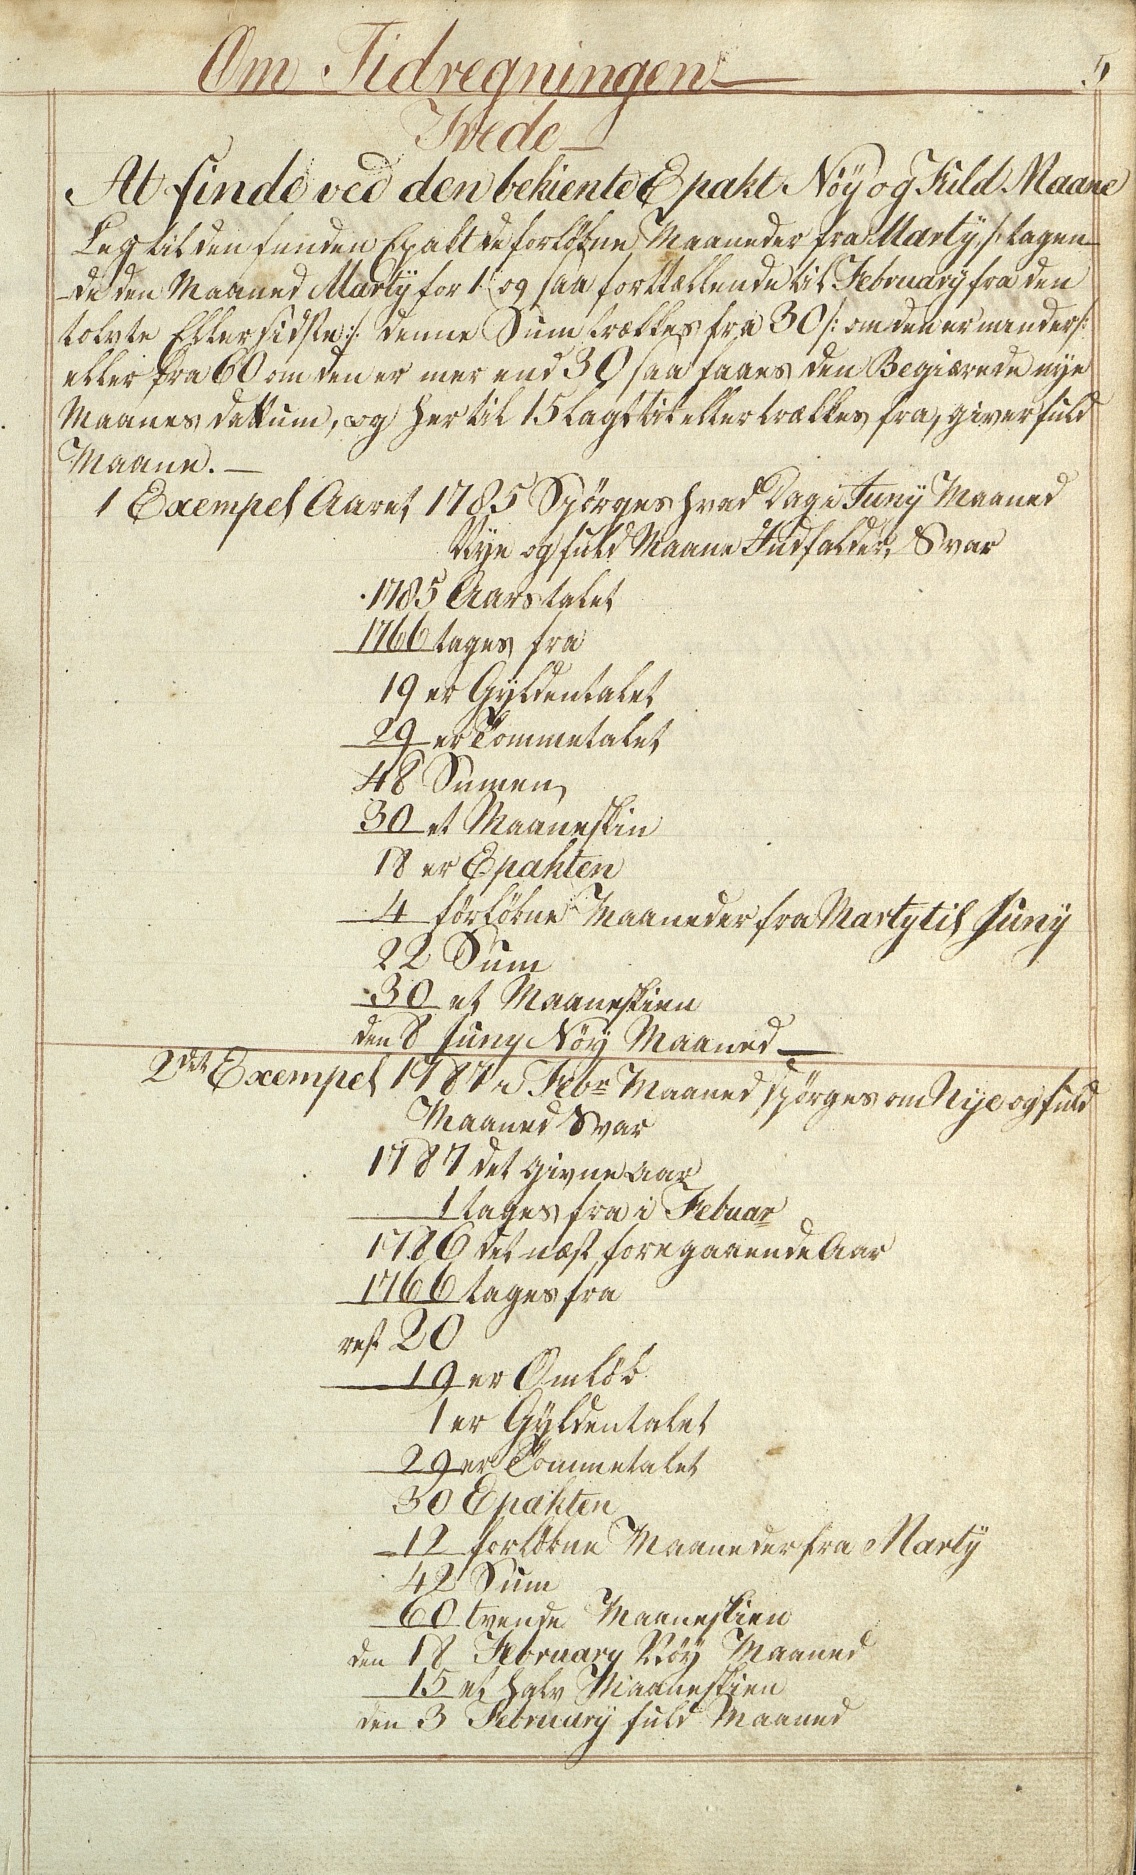 Om Tidregningen 5
Trede
At finde ved den bekiente Epakt Nøÿ og Fuld Maane
Leg til den funden Epakt de forløbne Maaneder fra Martÿ /: tagen-
-de den Maaned Martÿ for 1 og saa fortællende til Februarÿ fra den
tolvte Eller sidste :/ denne Sum trækkes fra 30 /: om den er minder :/
eller fra 60 om den er mer end 30 saa faaes den Begiærede nÿe
Maanes dattum, og her til 15 lagt til eller trækkes fra, giver fuld
Maane. —
1 Exempel Aaret 1785 Spørges hvad Dag i Junÿ Maaned
Nÿe og fuld Maane Indfalder, Svar
1785 Aarstalet
1766 tages fra
19 er Gÿldentalet
29 er Tommetalet
48 Sumen
30 et Maaneskin
18 er Epakten
4 forløbne Maaneder fra Martÿ til Junÿ
22 Sum
30 et Maaneskien
den 8 Junÿ Nøÿ Maaned —
2det Exempel 1787 i Febr Maaned spørges om Nÿe og fuld
Maaned Svar
1787 det givne aar
1 tages fra i Febuar
1786 det næst foregaaende Aar
1766 tages fra
rest 20
19 er Omløb
1 er Gÿldentalet
29 er Tommetalet
30 Epakten
12 forløbne Maaneder fra Martÿ
42 Sum
60 tvende Maaneskien
den 18 Februarÿ Nøÿ Maaned
15 et halv Maaneskien
den 3 Februarÿ fuld Maaned